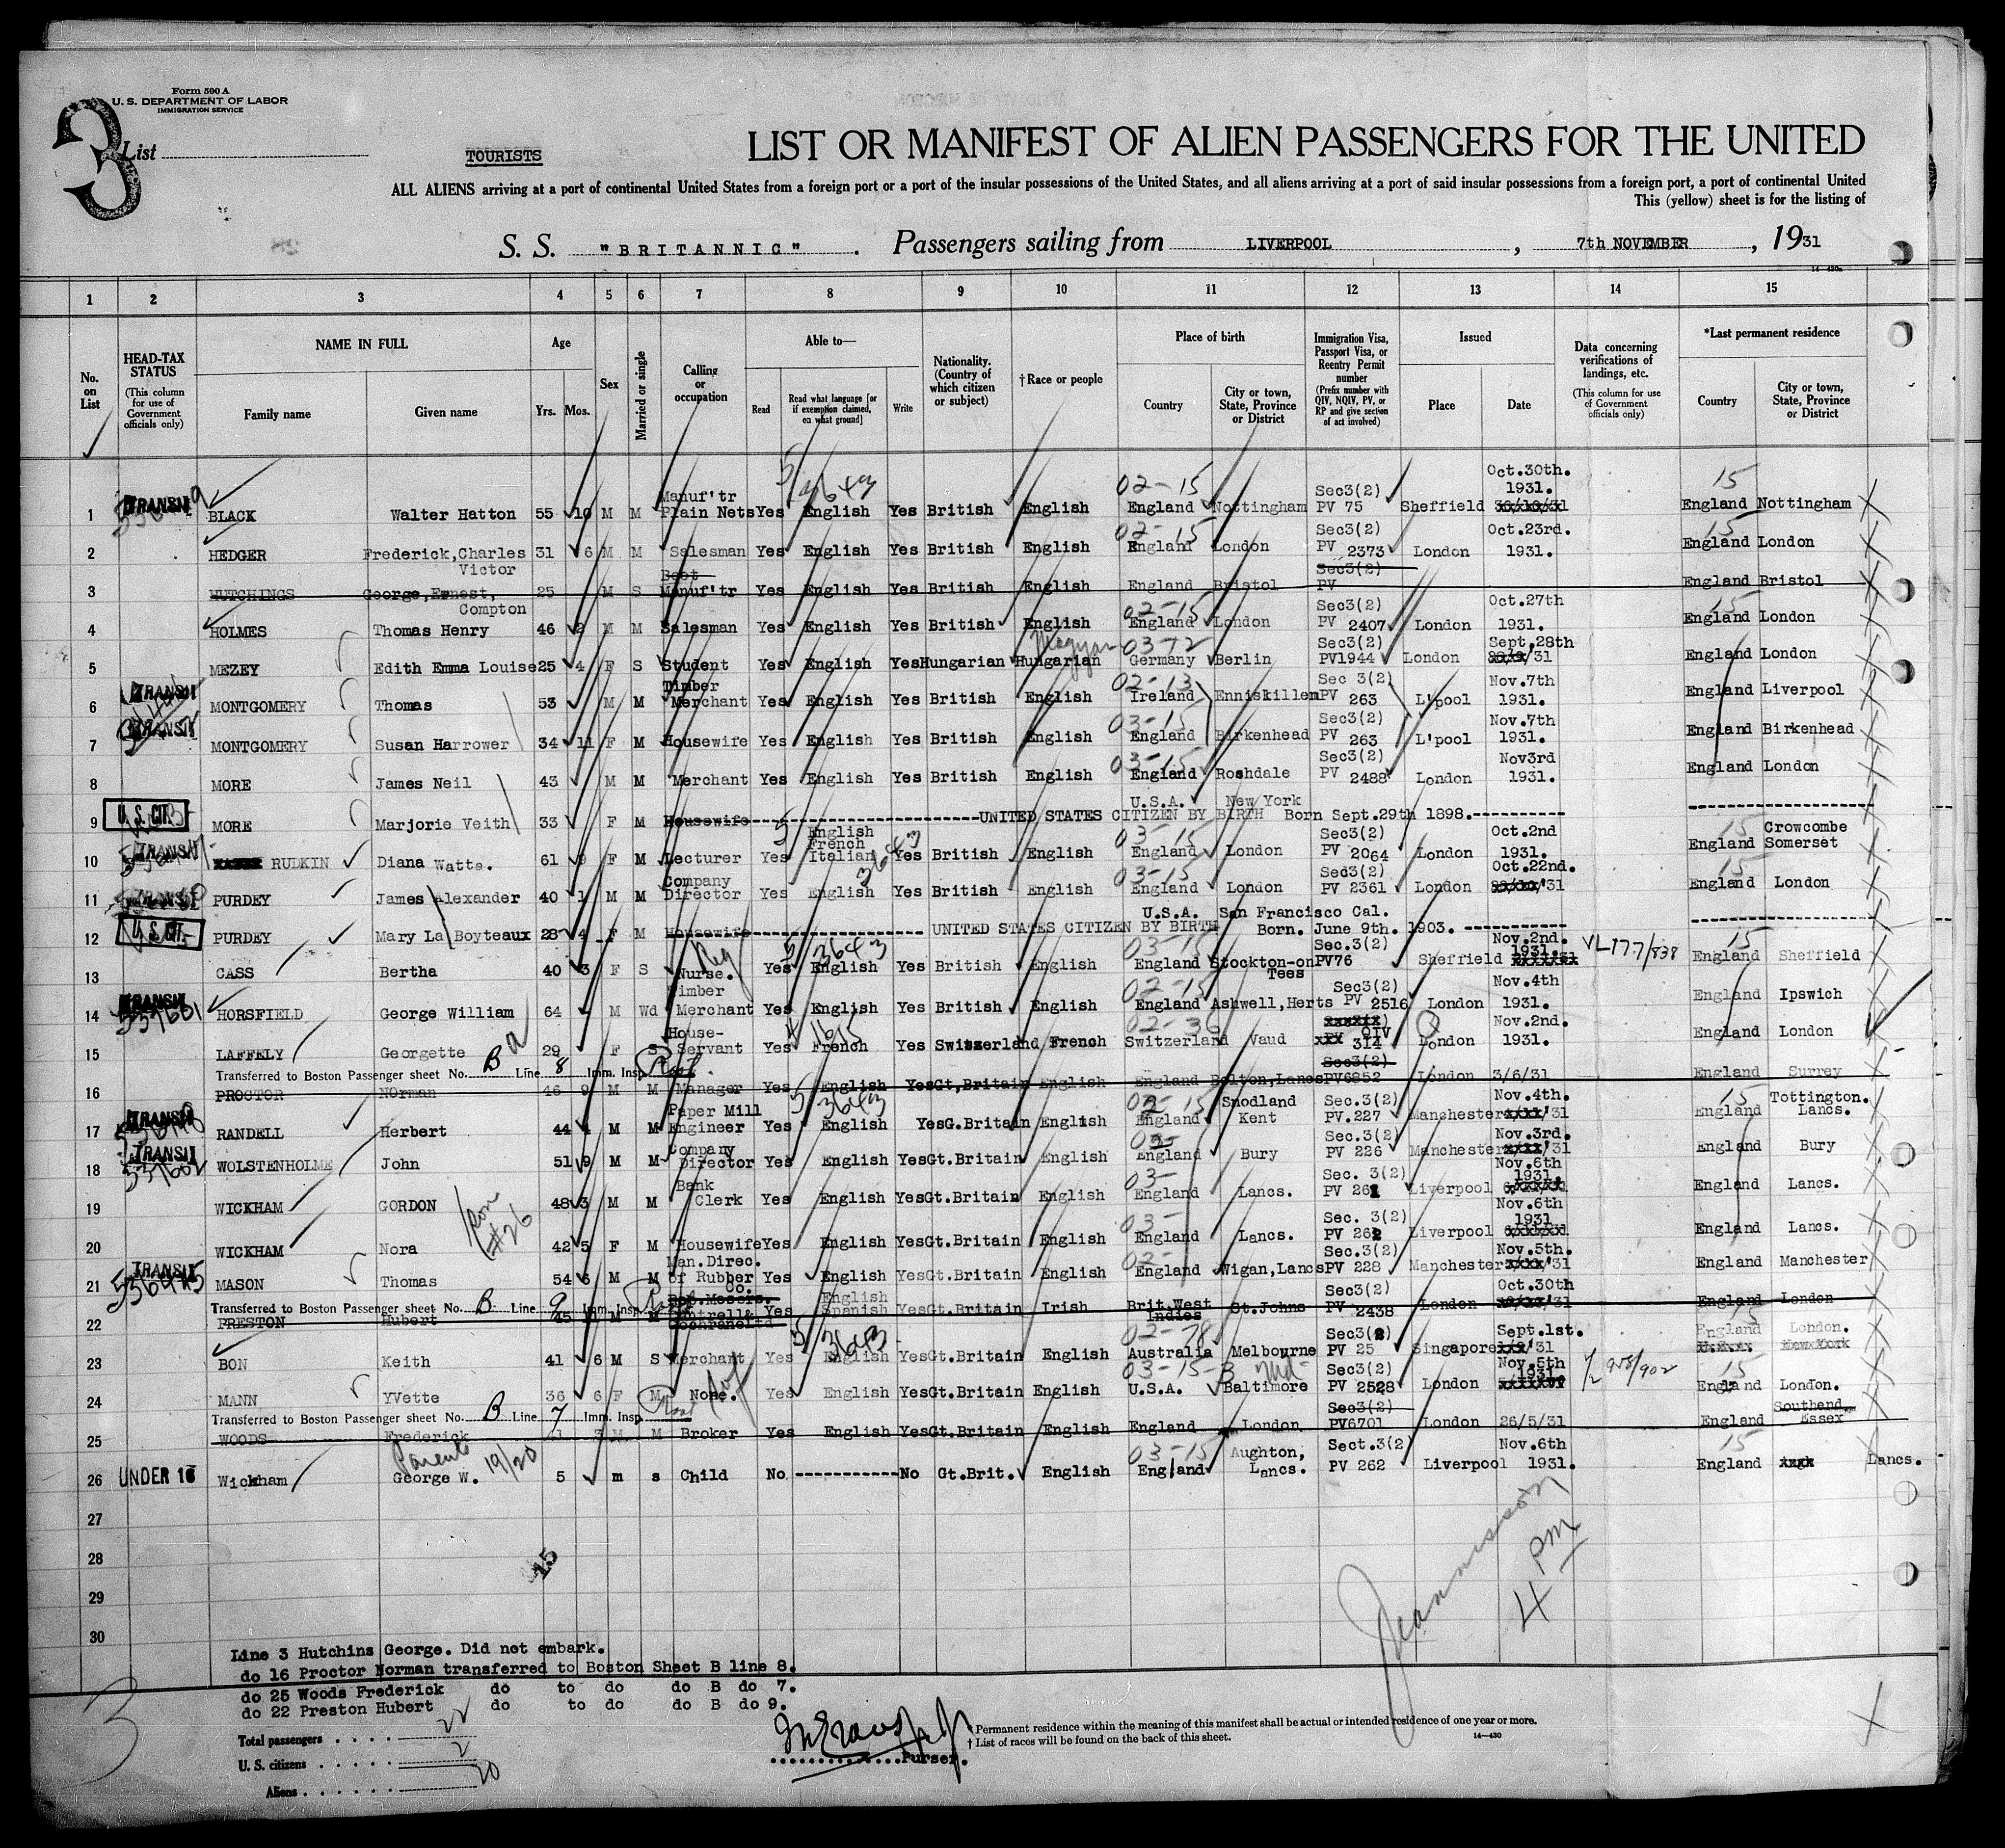 Form 500 A
U. S. DEPARTMENT OF LABOR
IMMIGRATION SERVICE
3
List
TOURISTS
LIST OR MANIFEST OF ALIEN PASSENGERS FOR THE UNITED
ALL ALIENS arriving at a port of continental United States from a foreign port or a port of the insular possessions of the United States, and all aliens arriving at a port of said insular possessions from a foreign port, a port of continental United
This (yellow) sheet is for the listing of
S. S. "BRITANNIC". Passengers sailing from LIVERPOOL, 7th NOVEMBER, 1931
1 2 3 4 5 6 7 8 9 10 11 12 13 14 15
No. on List
HEAD-TAX STATUS (This column for use of Government officials only)
NAME IN FULL Family name Given name
Age Yrs. Mos.
Sex
Married or single
Calling or occupation
Able to— Read Read what language [or if exemption claimed, on what ground] Write
Nationality. (Country of which citizen or subject)
†Race or people
Place of birth Country City or town, State, Province or District
Immigration Visa, Passport Visa, or Reentry Permit number (Prefix number with QIV, NQIV, PV, or RP and give section of act involved)
Issued Place Date
Data concerning verifications of landings, etc. (This column for use of Government officials only)
*Last permanent residence Country City or town, State, Province or District
1 TRANSIT BLACK Walter Hatton 55 10 M M Manuf'tr Plain Nets Yes English Yes British English 02-15 England Nottingham Sec3(2) PV 75 Sheffield Oct.30th. 1931. 15 England Nottingham
2 HEDGER Frederick, Charles Victor 31 6 M M Salesman Yes English Yes British English 02-15 England London Sec3(2) PV 2373 London Oct.23rd. 1931. 15 England London
3 HUTCHINGS George, Ernest, Compton 25 M S Boot Manuf'tr Yes English Yes British English England Bristol Sec3(2) PV England Bristol
4 HOLMES Thomas Henry 46 2 M M Salesman Yes English Yes British English 02-15 England London Sec3(2) PV 2407 London Oct.27th 1931. 15 England London
5 MEZEY Edith Emma Louise 25 4 F S Student Yes English Yes Hungarian Hungarian Magyar 03-12 Germany Berlin Sec3(2) PV1944 London Sept.28th 31 England London
6 TRANSIT MONTGOMERY Thomas 53 M M Timber Merchant Yes English Yes British English 02-13 Ireland Enniskillen Sec 3(2) PV 263 L'pool Nov.7th 1931. England Liverpool
7 TRANSIT MONTGOMERY Susan Harrower 34 11 F M Housewife Yes English Yes British English 03-15 England Birkenhead Sec3(2) PV 263 L'pool Nov.7th 1931. England Birkenhead
8 MORE James Neil 43 M M Merchant Yes English Yes British English 03-15 England Roshdale Sec3(2) PV 2488 London Nov3rd 1931. England London
9 U.S. CIT. MORE Marjorie Veith 33 F M Housewife UNITED STATES CITIZEN BY BIRTH U.S.A. New York Born Sept.29th 1898.
10 TRANSIT RUDKIN Diana Watts. 61 9 F M Lecturer Yes English French Italian Yes British English 03-15 England London Sec3(2) PV 2064 London Oct.2nd 1931. 15 England Crowcombe Somerset
11 TRANSIT PURDEY James Alexander 40 1 M M Company Director Yes English Yes British English 03-15 England London Sec3(2) PV 2361 London Oct.22nd. '31 15 England London
12 U.S. CIT. PURDEY Mary La Boyteaux 28 4 F M Housewife UNITED STATES CITIZEN BY BIRTH U.S.A. San Francisco Cal. Born. June 9th. 1903.
13 CASS Bertha 40 3 F S Reg Nurse. Yes English Yes British English 03-15 England Stockton-on Tees Sec.3(2) PV76 Sheffield Nov.2nd. 1931. VL177/838 15 England Sheffield
14 TRANSIT HORSFIELD George William 64 M Wd Timber Merchant Yes English Yes British English 02-15 England Ashwell, Herts Sec3(2) PV 2516 London Nov.4th 1931. England Ipswich
15 LAFFELY Georgette 29 F S House-Servant Yes French Yes Switzerland French 02-36 Switzerland Vaud QIV 314 London Nov.2nd. 1931. England London
Transferred to Boston Passenger sheet No. B Line 8 Imm. Insp.
16 PROCTOR NOrman 46 9 M M Manager Yes English Yes Gt,Britain English England Bolton,Lancs Sec3(2) PV6852 London 3/6/31 England Surrey
17 TRANSIT RANDELL Herbert 44 4 M M Paper Mill Engineer Yes English Yes G.Britain English 02-15 England Snodland Kent Sec.3(2) PV.227 Manchester Nov.4th. '31 15 England Tottington. Lancs.
18 TRANSIT WOLSTENHOLME John 51 9 M M Company Director Yes English Yes Gt.Britain English 02- England Bury Sec.3(2) PV 226 Manchester Nov.3rd. '31 England Bury
19 WICKHAM GORDON 48 3 M M Bank Clerk Yes English Yes Gt.Britain English 03- England Lancs. Sec. 3(2) PV 262 Liverpool Nov.6th 1931. England Lancs.
20 WICKHAM Nora 42 5 F M Housewife Yes English Yes Gt.Britain English 03- England Lancs. Sec. 3(2) PV 262 Liverpool Nov.6th 1931 England Lancs.
Son #26
21 TRANSIT MASON Thomas 54 6 M M Man.Direc. of Rubber Co. Yes English Yes Gt.Britain English 02- England Wigan,Lancs Sec.3(2) PV 228 Manchester Nov.5th. '31 England Manchester
Transferred to Boston Passenger sheet No. B. Line 9 Imm. Insp.
22 PRESTON Hubert 45 11 M M Yes English Spanish Yes Gt.Britain Irish Brit.West Indies St.Johns Sec3(2) PV 2438 London Oct.30th '31 England London
23 BON Keith 41 6 M S Merchant Yes English Yes Gt.Britain English 02-78 Australia Melbourne Sec3(2) PV 25 Singapore Sept.1st. '31 15 England London. New York
24 MANN YVette 36 6 F M None. Yes English Yes Gt.Britain English 03-15-3 U.S.A. Baltimore Md- Sec3(2) PV 2528 London Nov.5th 1931. 15 England London.
Transferred to Boston Passenger sheet No. B Line 7 Imm. Insp.
25 WOODS Frederick 41 3 M M Broker Yes English Yes Gt.Britain English England London Sec3(2) PV6701 London 26/5/31 England Southend Essex
Parents 19/20
26 UNDER 16 Wickham George W. 5 m s Child No No Gt.Brit. English 03-15 England Aughton, Lancs. Sect.3(2) PV 262 Liverpool Nov.6th 1931. 15 England Lancs.
27
28
29
30
4 PM
Line 3 Hutchins George. Did not embark.
do 16 Proctor Norman transferred to Boston Sheet B line 8.
do 25 Woods Frederick do to do do B do 7.
do 22 Preston Hubert do to do do B do 9.
3
Total passengers 22
U. S. citizens 2
Aliens 20
Purser.
* Permanent residence within the meaning of this manifest shall be actual or intended residence of one year or more.
† List of races will be found on the back of this sheet.
14—430